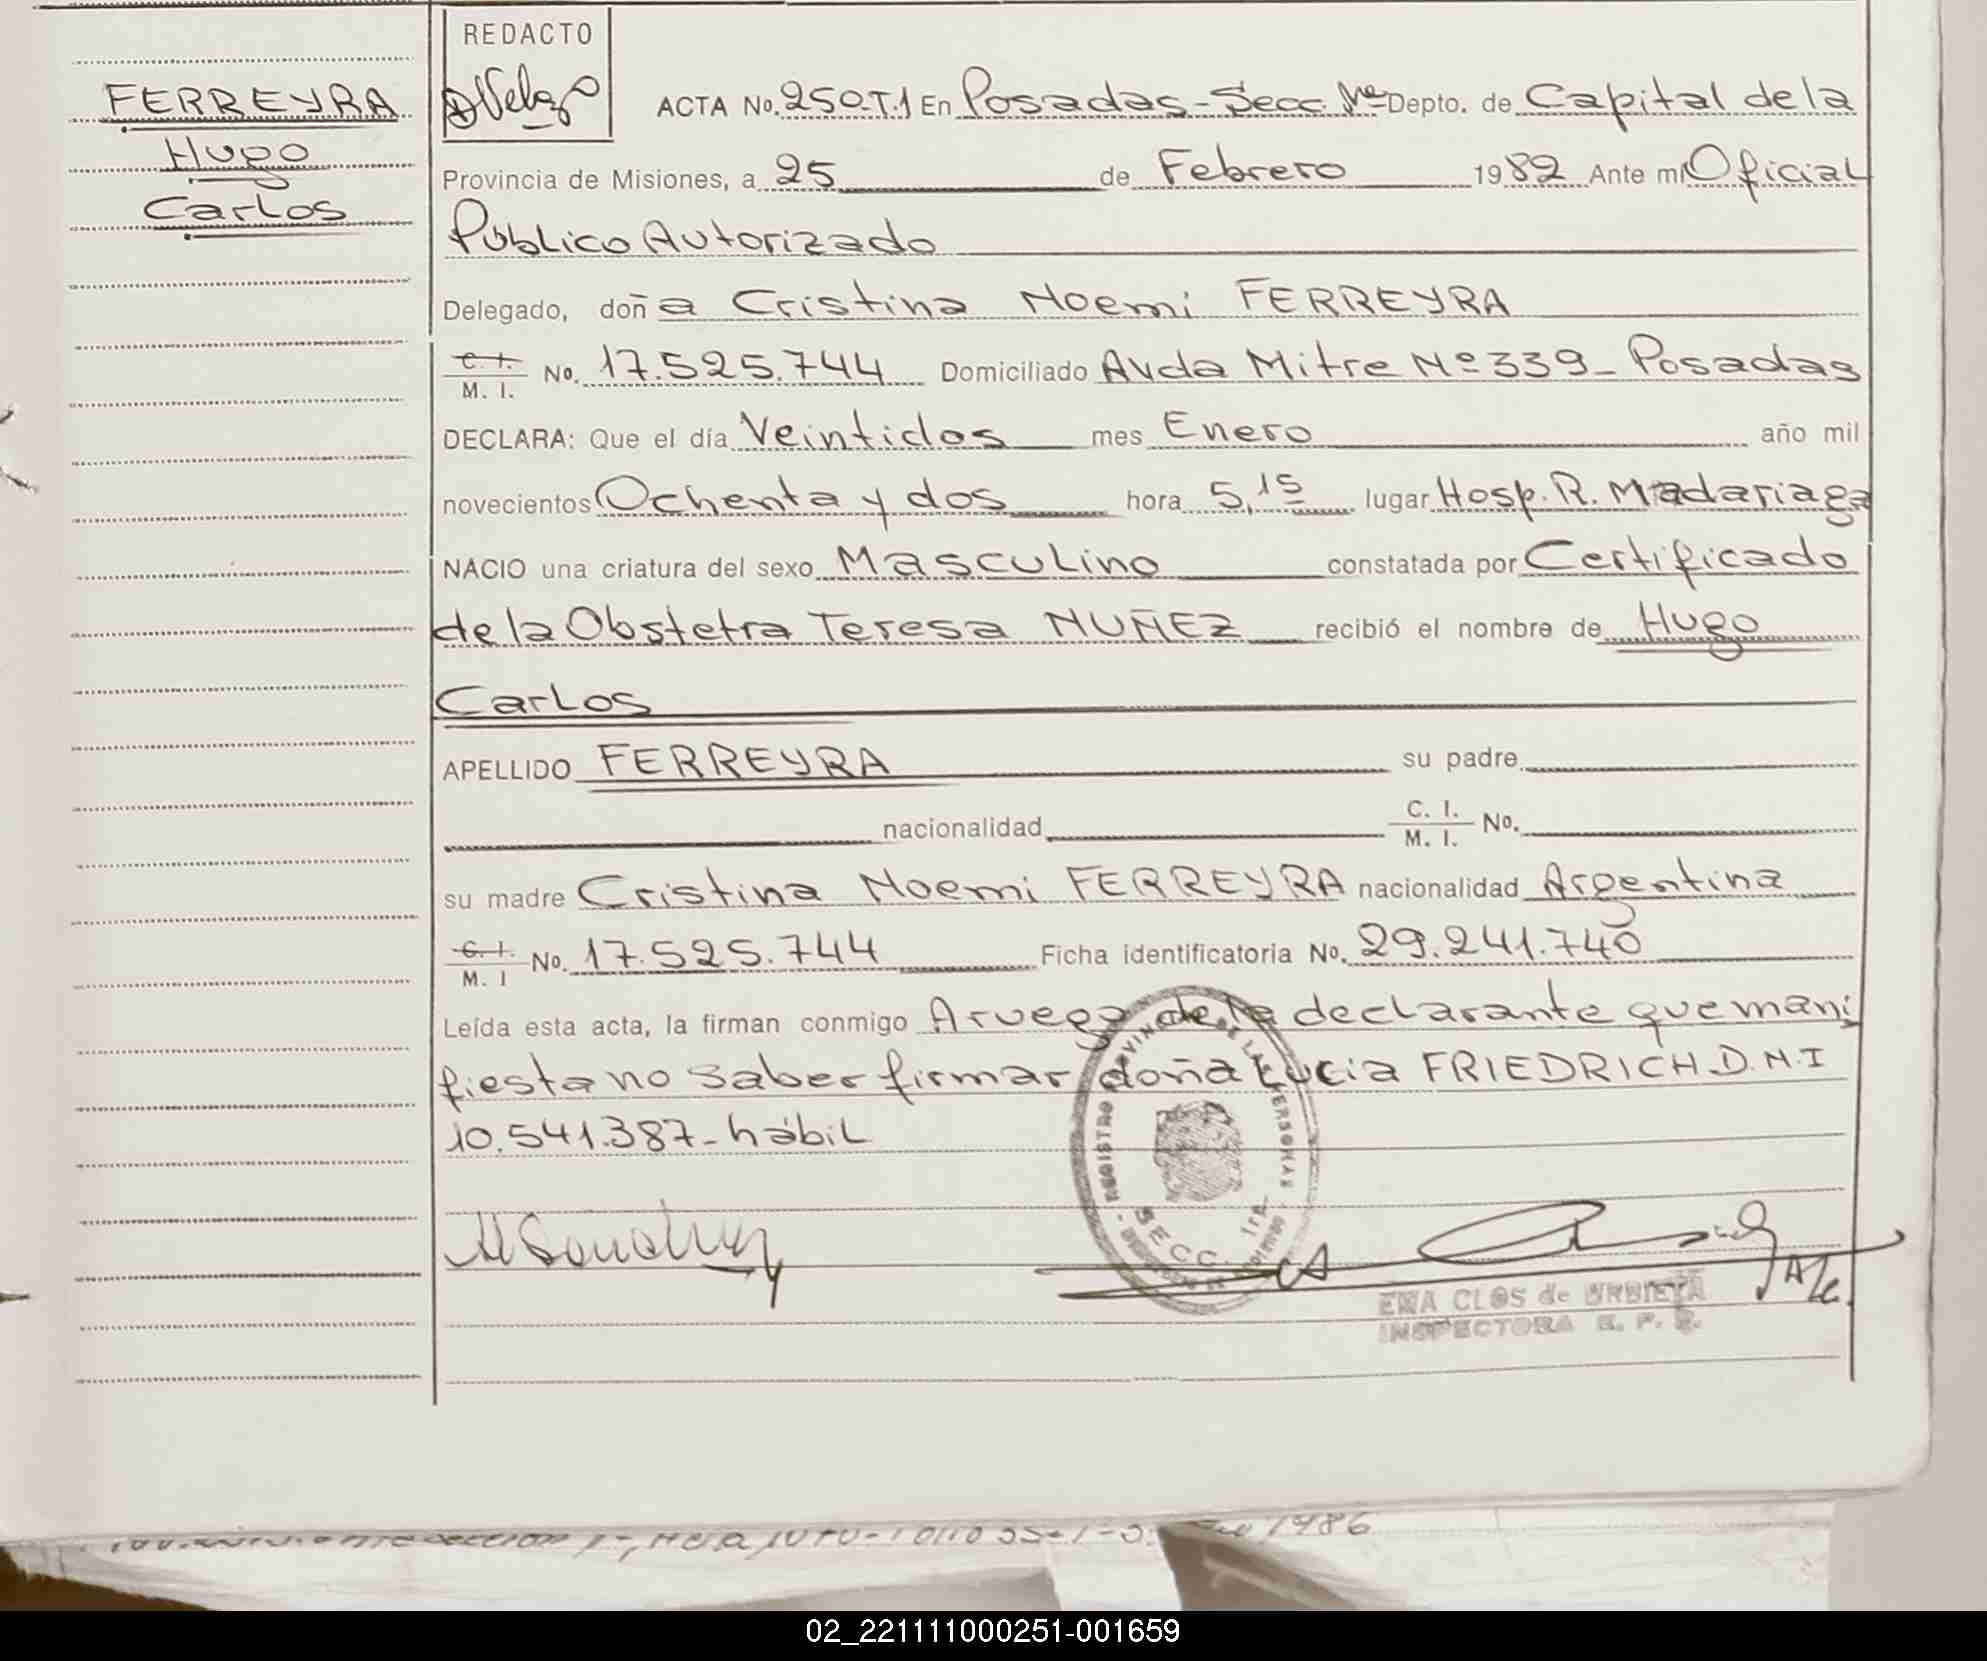 REDACTO
FERREYRA
Hugo
Carlos
ACTA No. 250-T.1 En Posadas-Secc. 1ra Depto. de Capital de la
Provincia de Misiones, a 25 de Febrero 1982 Ante mi Oficial
Público Autorizado
Delegado, doña Cristina Noemi FERREYRA
C. I. / M. I. No. 17.525.744 Domiciliado Avda Mitre Nº 339_ Posadas
DECLARA: Que el día Veintidos mes Enero año mil
novecientos Ochenta y dos hora 5,15 lugar Hosp. R. Madariaga
NACIO una criatura del sexo Masculino constatada por Certificado
de la Obstetra Teresa NUÑEZ recibió el nombre de Hugo
Carlos
APELLIDO FERREYRA su padre
nacionalidad C. I. / M. I. No.
su madre Cristina Noemi FERREYRA nacionalidad Argentina
C. I. / M. I No. 17.525.744 Ficha identificatoria No. 29.241.740
Leída esta acta, la firman conmigo A ruego de la declarante que mani
fiesta no saber firmar doña Lucia FRIEDRICH. D.N.I
10.541.387_ hábil
REGISTRO PROVINCIAL DE LAS PERSONAS
SECC. 1ra
EMA CLOS de URBIETA
INSPECTORA
1986
02_221111000251-001659